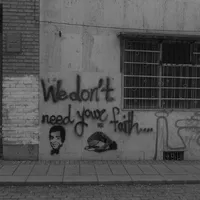 We don't
need your faith...